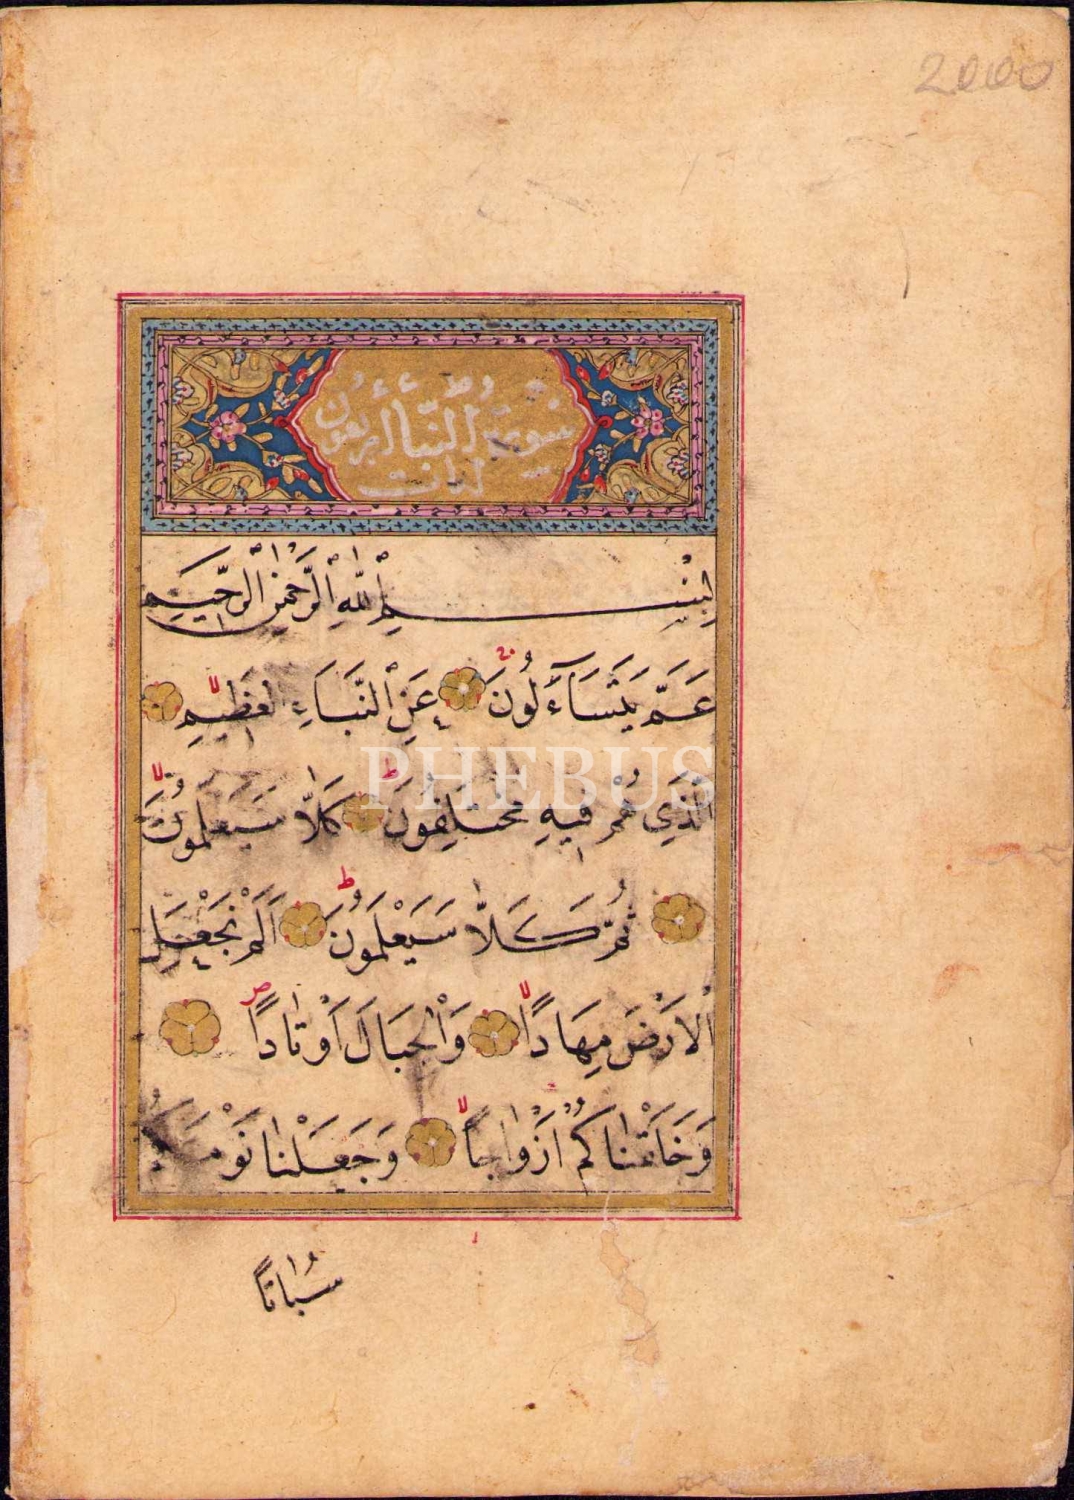 2000
سورة النبأ اربعون
ايات
بِسْمِ ٱللّٰهِ ٱلرَّحْمٰنِ ٱلرَّحِيمِ
عَمَّ يَتَسَآءَلُونَ عَنِ ٱلنَّبَاءِ لعَظِيمِ
ٱلَّذِي هُمْ فِيهِ مُخْتَلِفُونَ كَلاَّ سَيَعْلَمُونَ
ثُمَّ كَلاَّ سَيَعْلَمُونَ اَلَمْ نَجْعَلِ
ٱلاَرْضَ مِهَادًا وَٱلْجِبَالَ اَوْتَادًا
وَخَلَقْنَاكُمْ اَزْوَاجًا وَجَعَلْنَا نَوْمَكُمْ
سُبَاتًا
PHEBUS